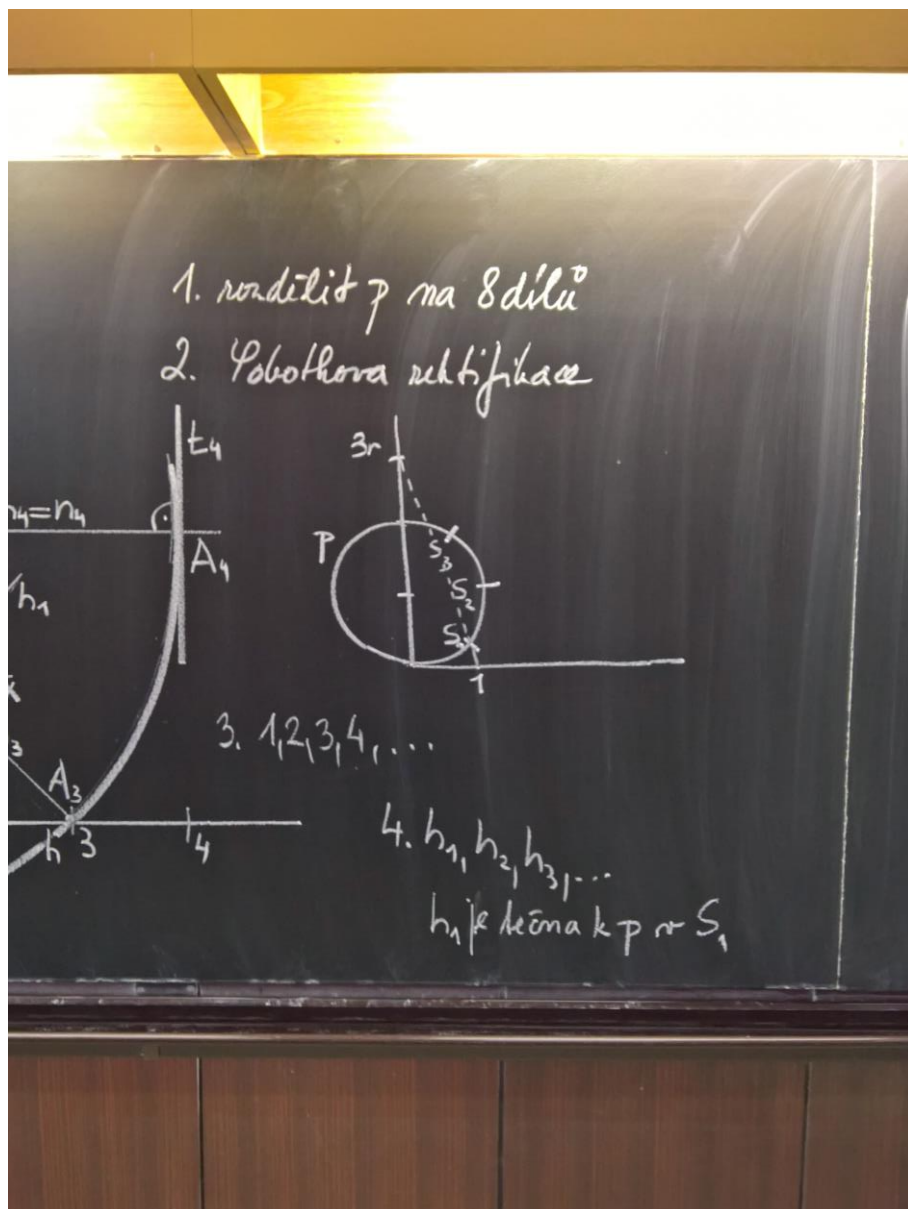 1. rozdělit p na 8 dílů
2. Sobotkova rektifikace
t₄
3r
n₄=n₄
p
A₄
S₃
h₁
S₂
S₁
1
3. 1,2,3,4,...
3
A₃
h 3
4
4. h₁,h₂,h₃,...
h₁ je tečna k p v S₁